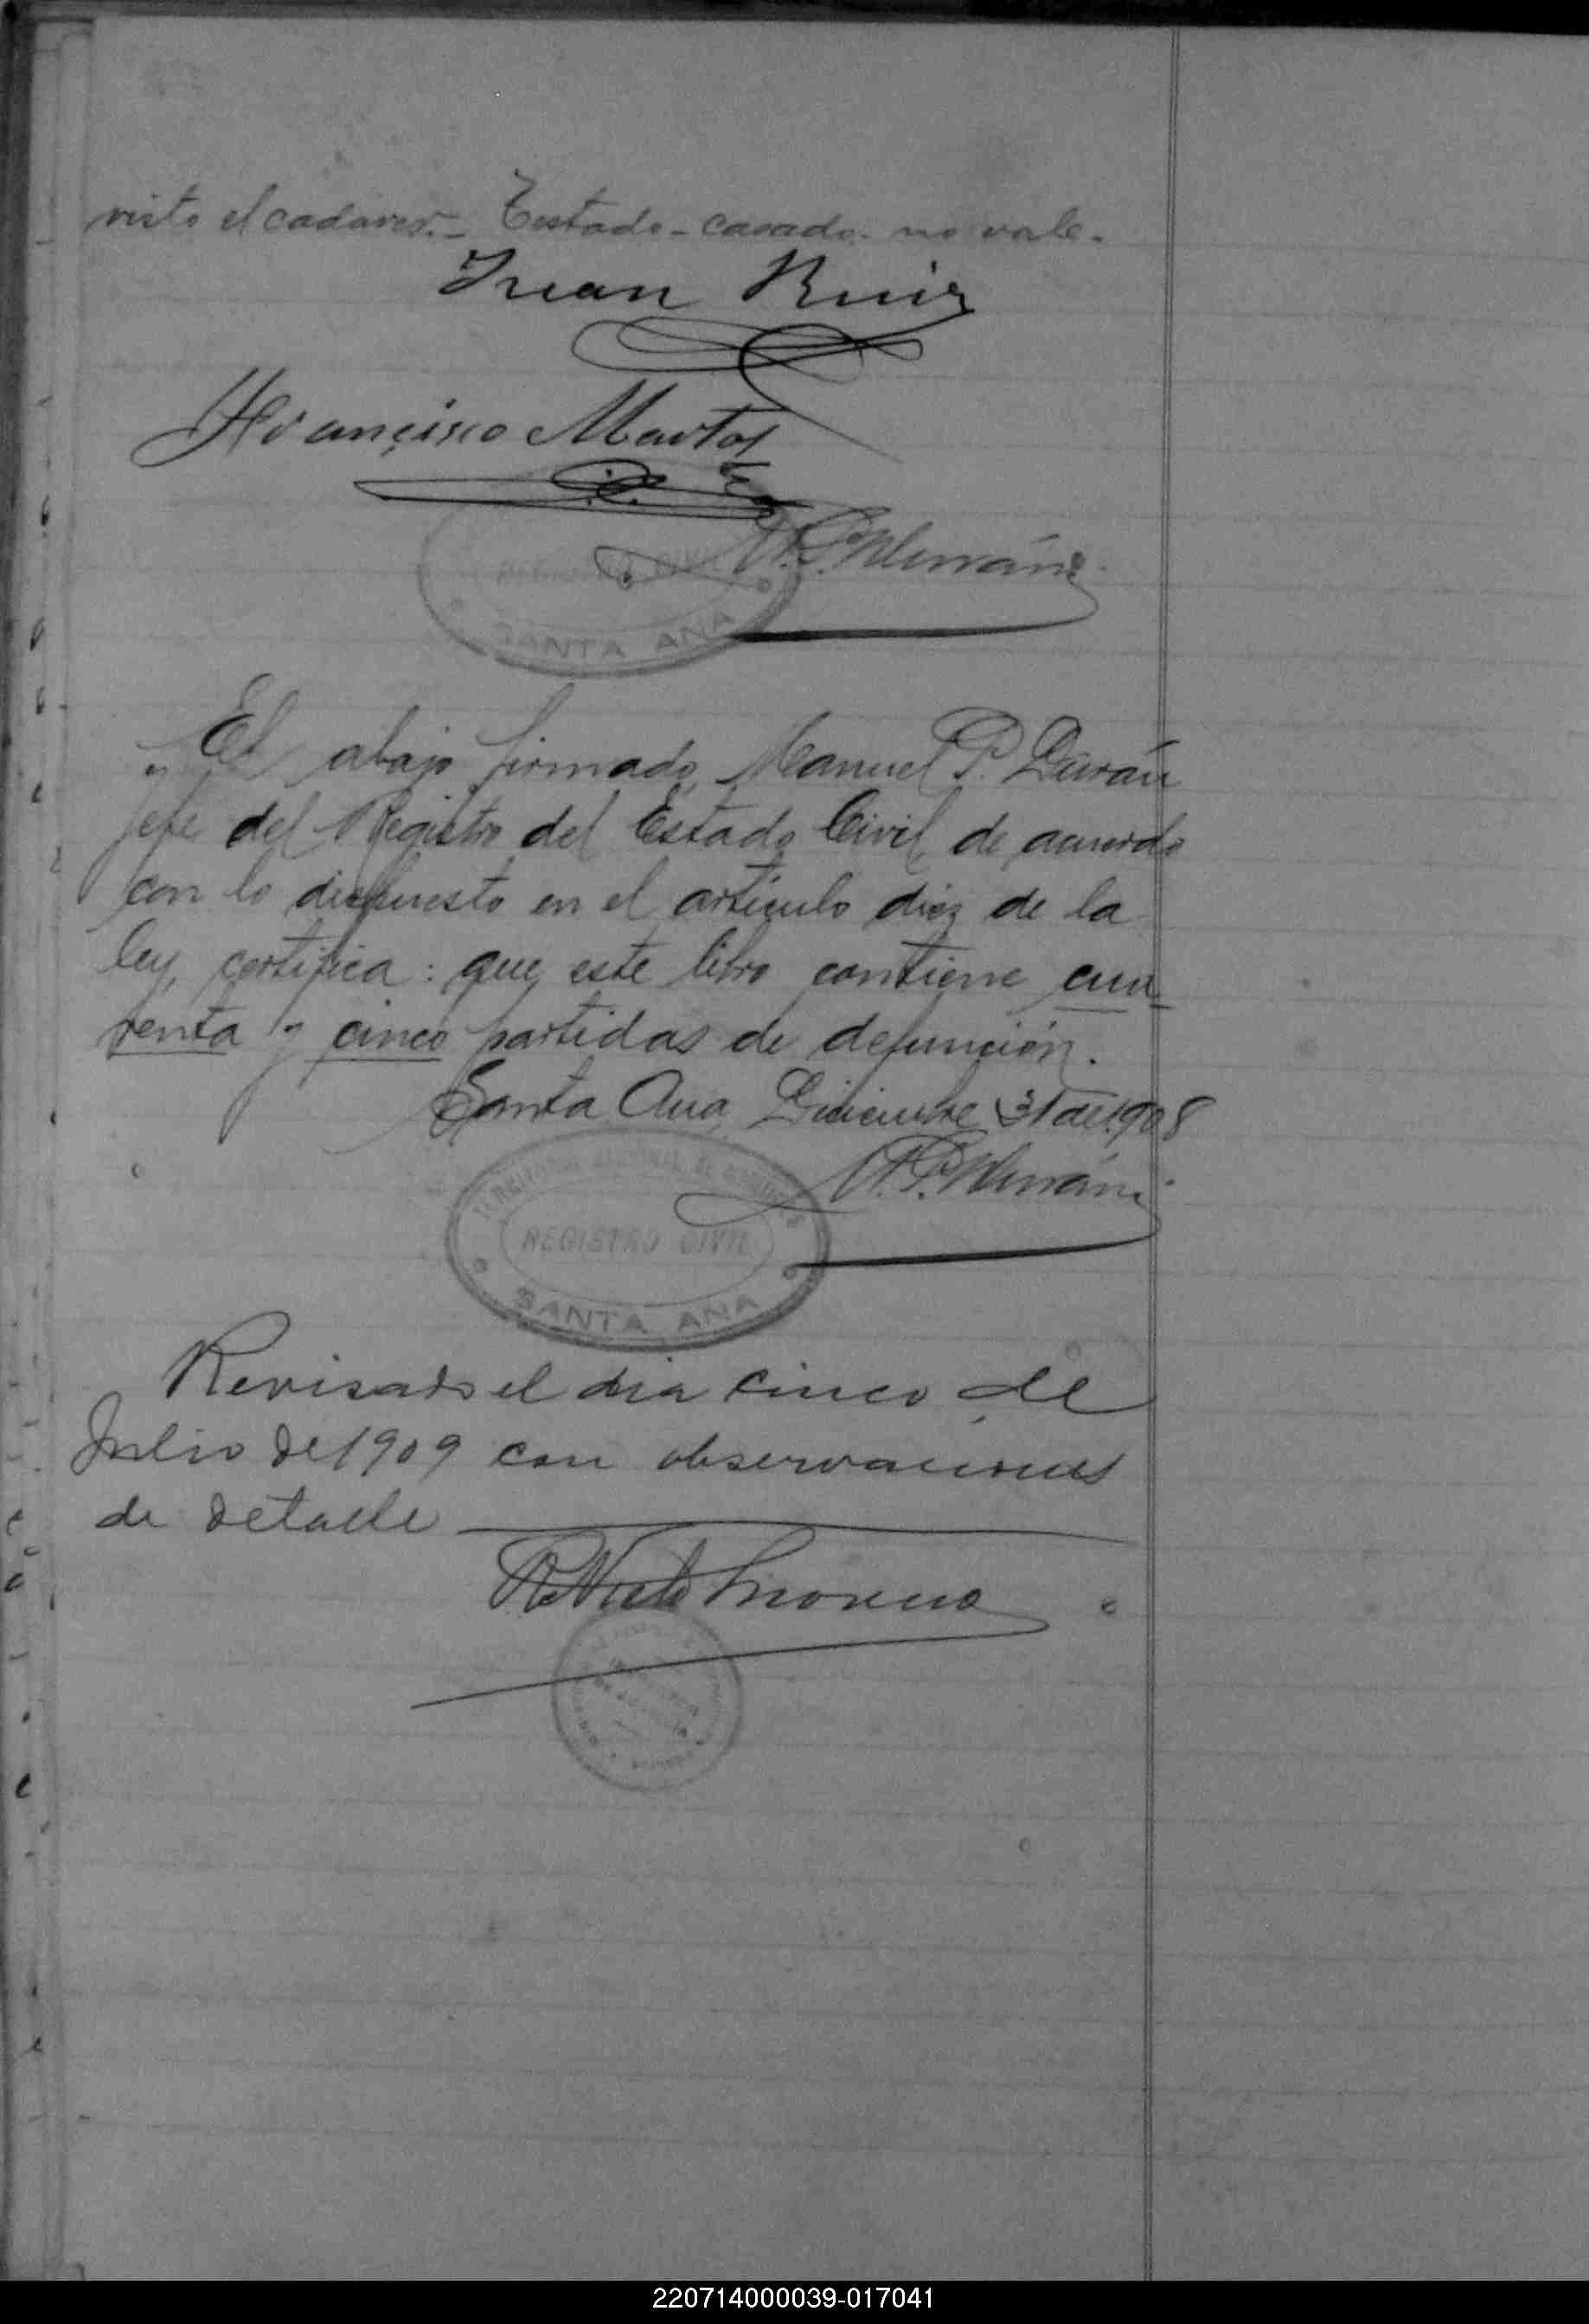 visto el cadáver.- Testado - casado - no vale.
Juan Ruiz
Francisco Martos
M. P. Durán
REGISTRO CIVIL
SANTA ANA
El abajo firmado, Manuel P. Durán
jefe del Registro del Estado Civil, de acuerdo
con lo dispuesto en el artículo diez de la
ley, certifica: que este libro contiene cua-
renta y cinco partidas de defunción.
Santa Ana, Diciembre 31 de 1908
M. P. Durán
REGISTRO CIVIL
SANTA ANA
Revisado el dia cinco de
Julio de 1909 con observaciones
de detalle
Moreno
220714000039-017041